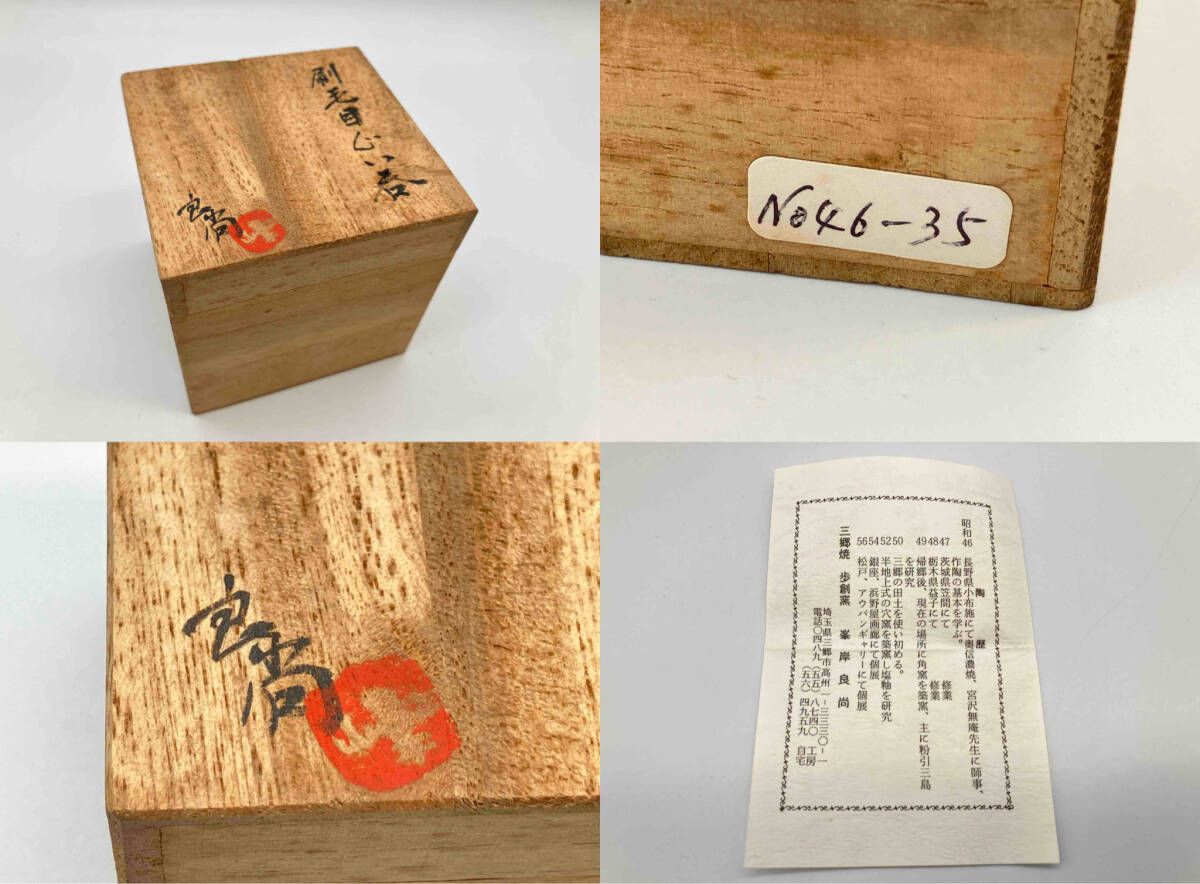 刷毛目ぐい呑
良尚
No46-35
良尚
陶歴
昭和
46 長野県小布施にて奥信濃焼、宮沢無庵先生に師事、
作陶の基本を学ぶ。
47 茨城県笠間にて 修業
48 栃木県益子にて 修業
49 帰郷後、現在の場所に角窯を築窯、主に粉引三島
を研究
50 三郷の田土を使い初める。
52 半地上式の穴窯を築窯し塩釉を研究
54 銀座、浜野屋画廊にて個展
56 松戸、アウバンギャリーにて個展
三郷焼 歩創窯 峯岸良尚
埼玉県三郷市高州一―三三〇―一
電話〇四八九(五五)八七四〇 工房
(五六)四九五九 自宅